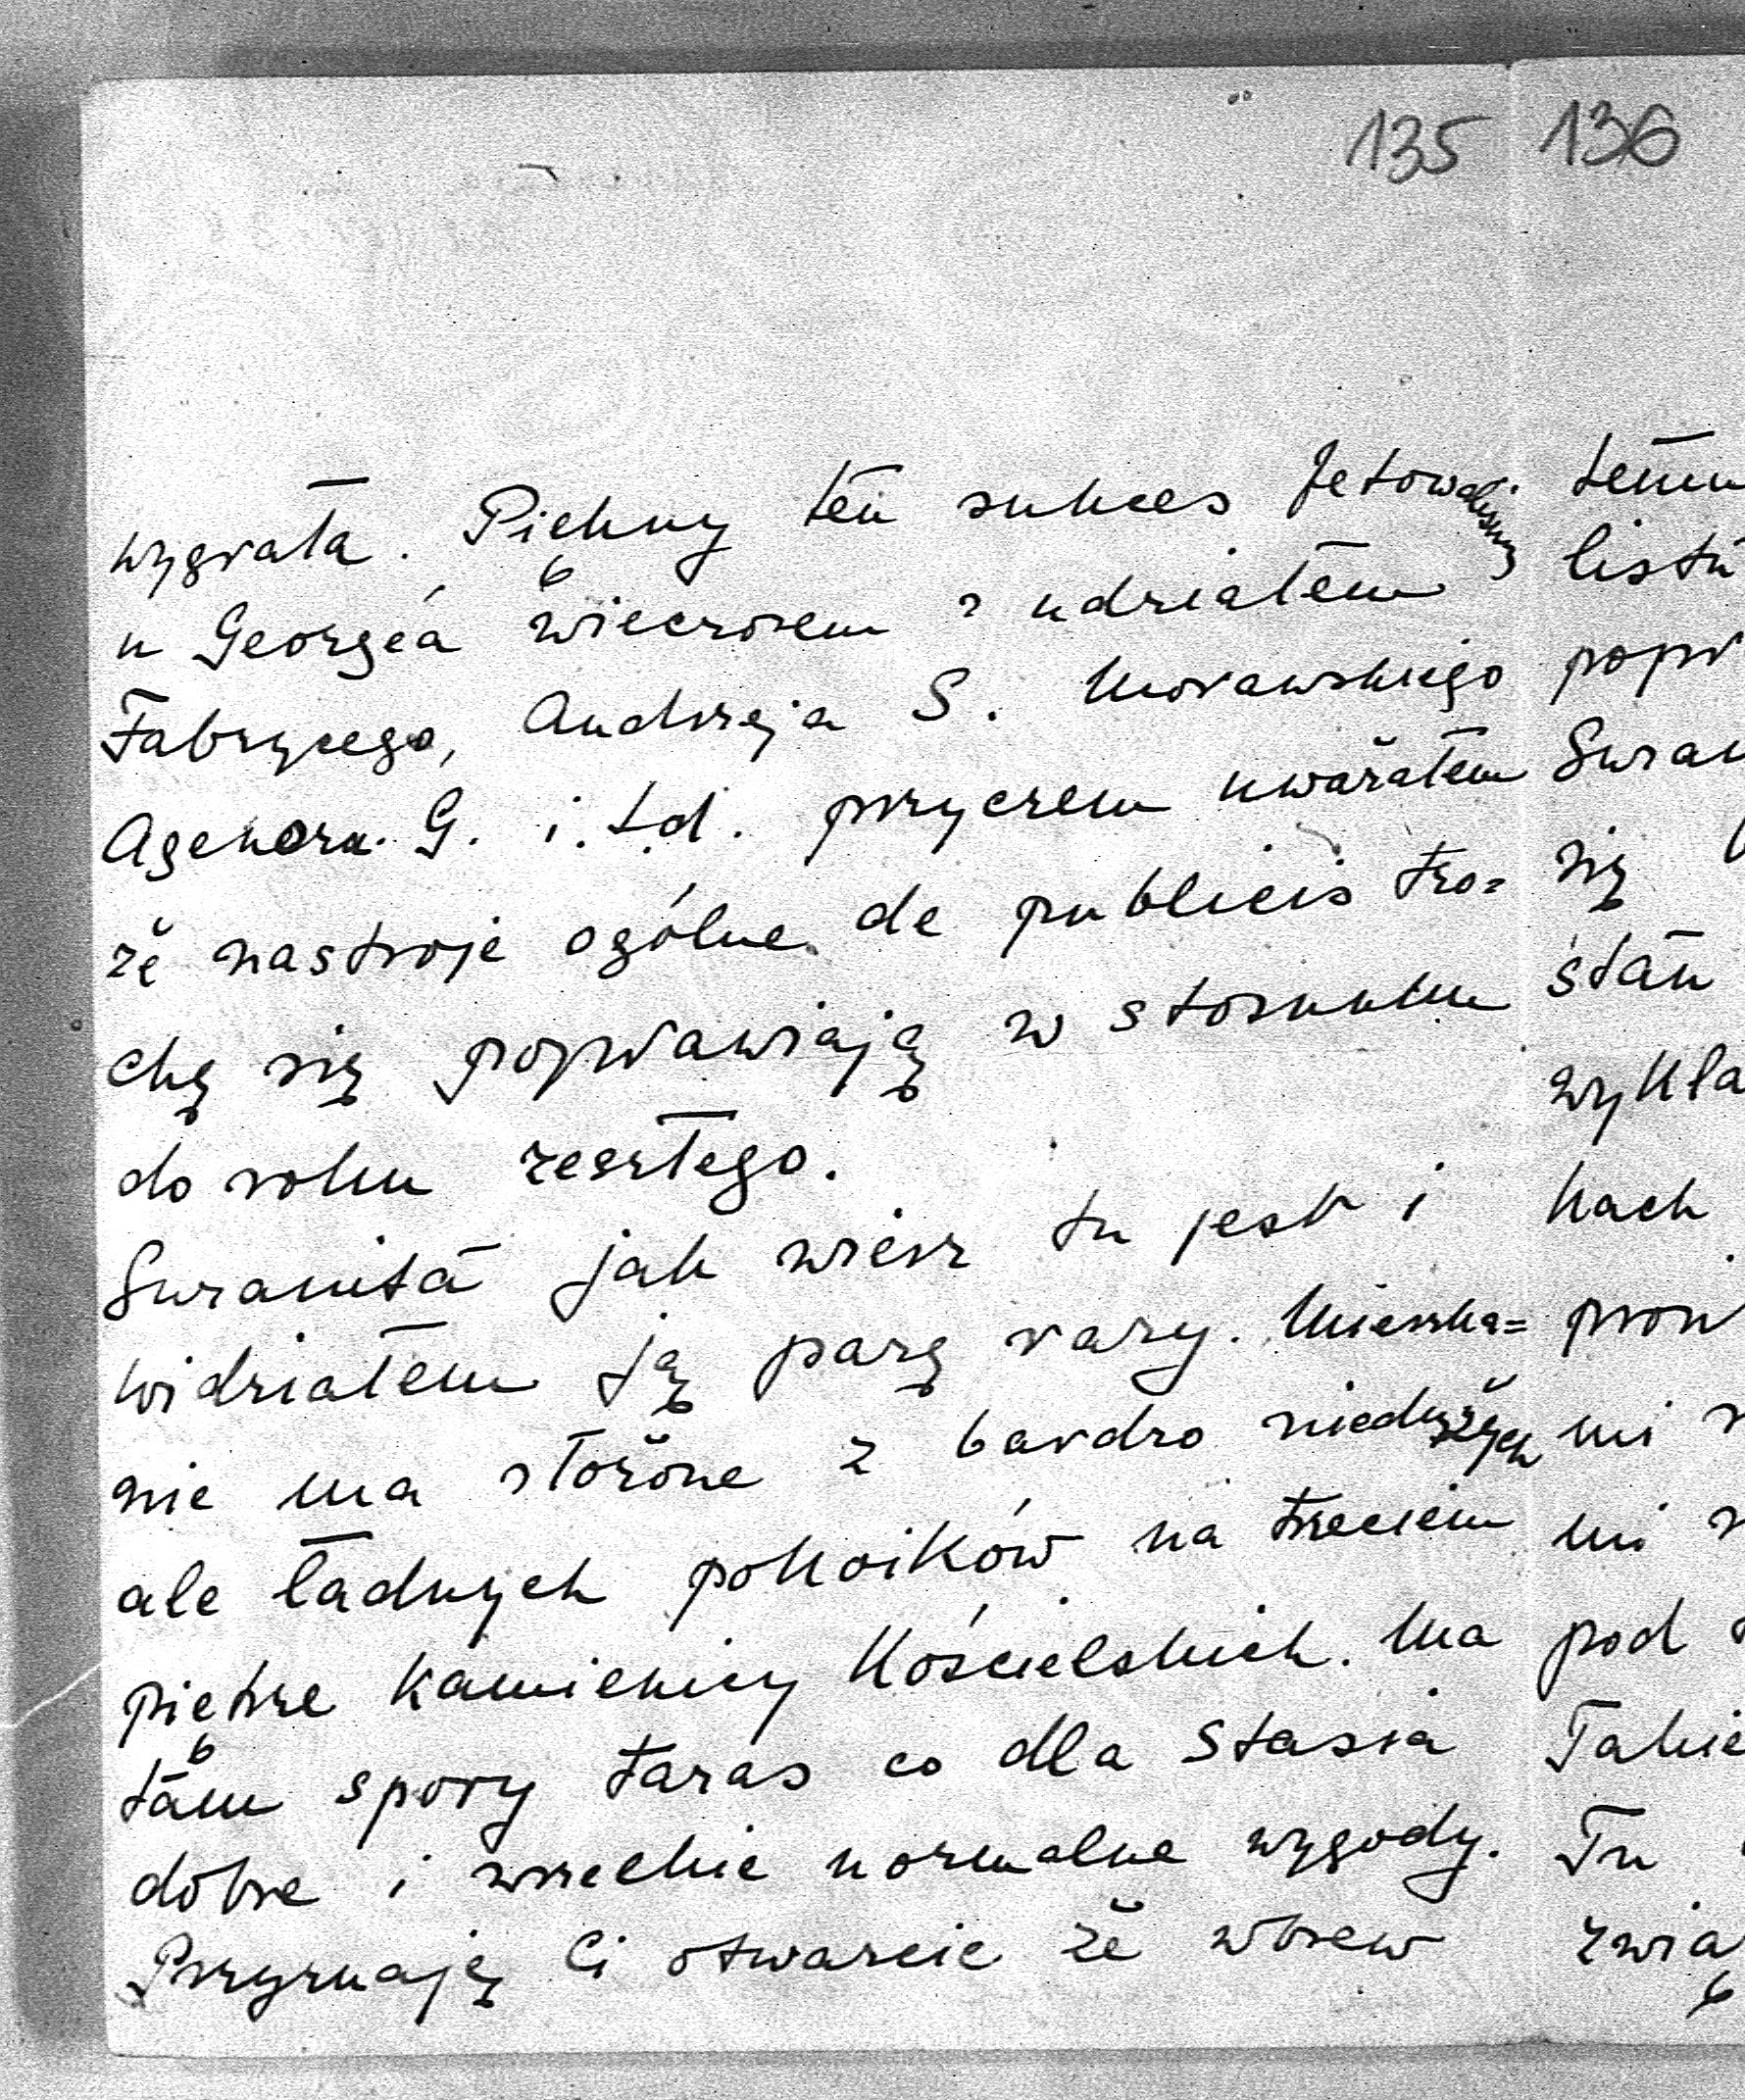 135 136
wygrała. Piękny ten sukces fetowaliśmy
u George'a wieczorem z udziałem
Fabrycego, Andrzeja S. Morawskiego
Agenora G. i.t.d. przyczem uważałem
że nastroje ogólne de publicis tro=
chę się poprawiają w stosunku
do roku zeszłego.
jak wiesz tu jest i
widziałem ją parę razy. Mieszka=
nie ma złożone z bardzo niedużych
ale ładnych pokoików na trzeciem
piętrze kamienicy Kościelskich. Ma
tam spory taras co dla Stasia
dobre i wszelkie normalne wygody.
Przyznaję Ci otwarcie że wbrew
listu
się
stan
kach
mi
mi
pod
Tu